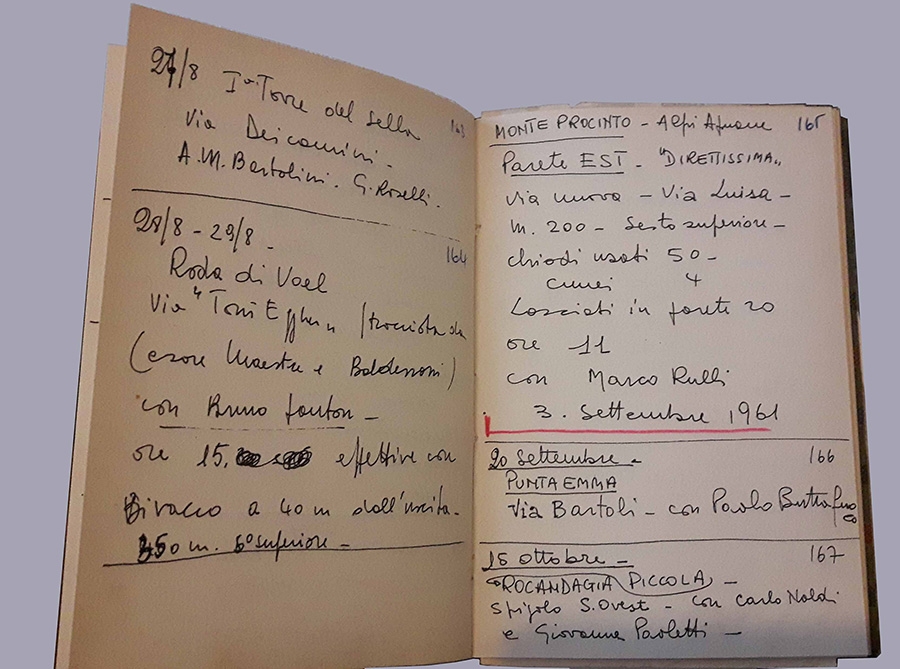 27/8 Iª Torre del Sella
163
Via Deicanini -
A.M. Bartolini. G. Roselli.
28/8 - 29/8 -
164
Roda di Vael
Via "Toni Egger" tracciata da
(Cesare Maestri e Baldessari)
con Bruno
ore 15, effettive con
Bivacco a 40 m dall'uscita.
350 m. 6º superiore -
MONTE PROCINTO - Alpi Apuane 165
Parete EST - "DIRETTISSIMA"
via nuova - Via Luisa -
m. 200 - Sesto superiore -
chiodi usati 50 -
cunei 4
Lasciati in parete 20
ore 11
con Marco Rulli
3. Settembre 1961
20 Settembre - 166
PUNTA EMMA
Via Bartoli - con Paolo
15 ottobre - 167
ROCANDAGIA PICCOLA -
Spigolo S.Ovest - con Carlo Noldi
e Giovanna Paoletti -